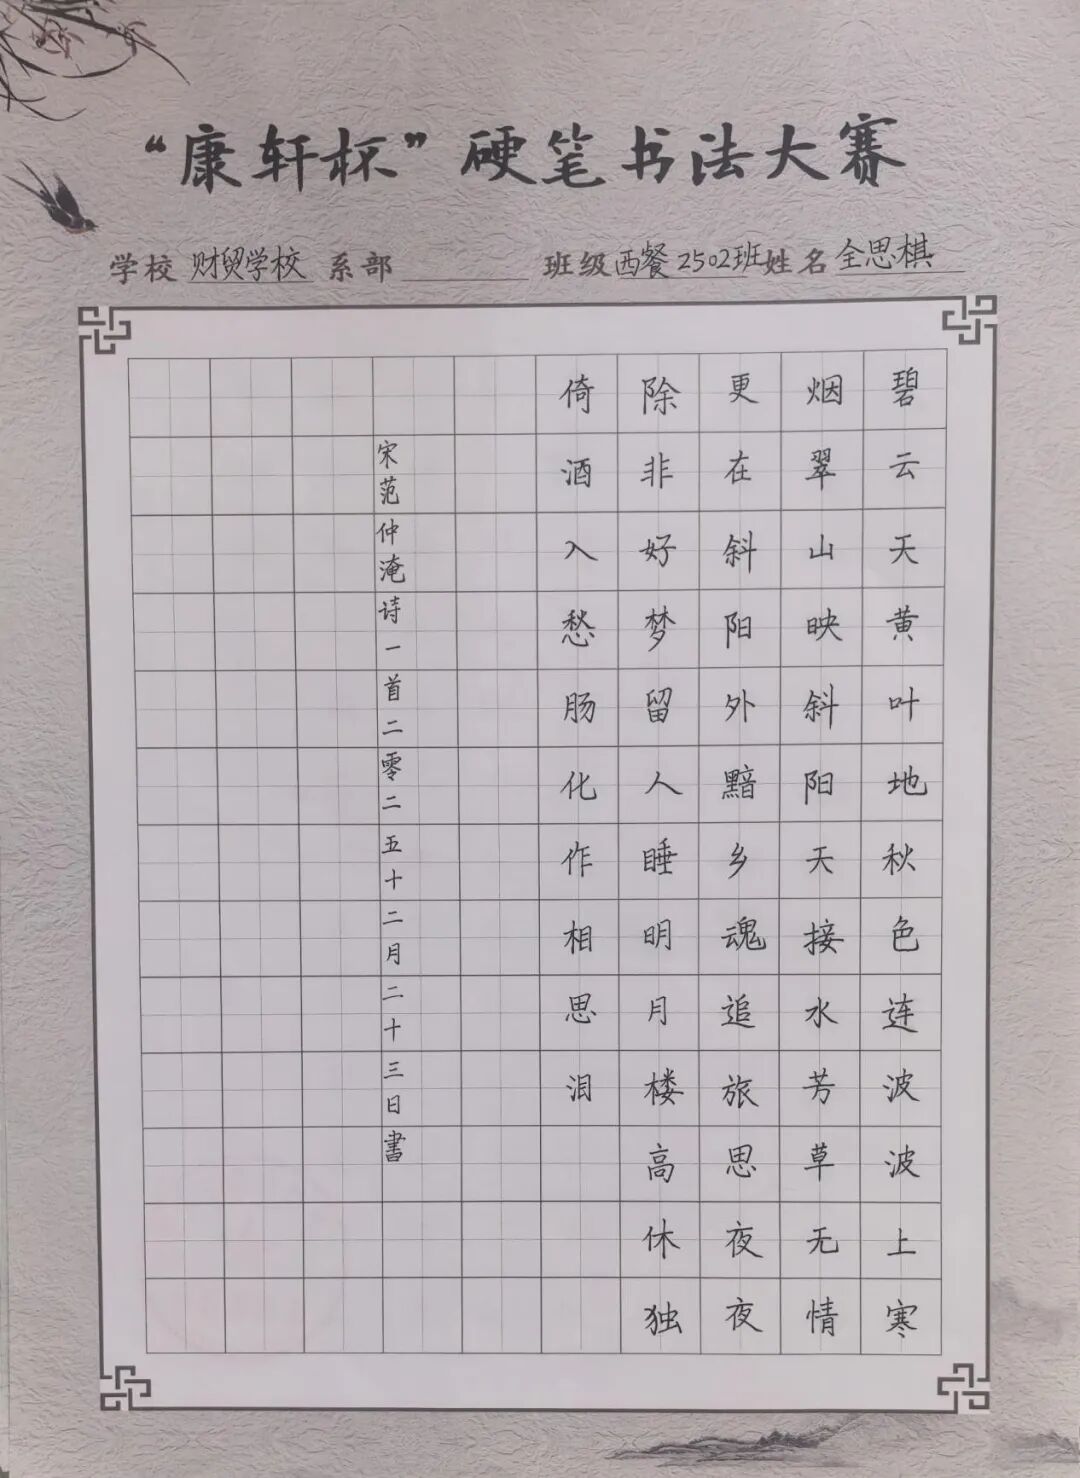 “康轩杯”硬笔书法大赛
学校 财贸学校 系部 班级 西餐2502班 姓名 全思棋
碧云天黄叶地秋色连波波上寒
烟翠山映斜阳天接水芳草无情
更在斜阳外黯乡魂追旅思夜夜
除非好梦留人睡明月楼高休独
倚酒入愁肠化作相思泪
宋范仲淹诗一首二零二五十二月二十三日書